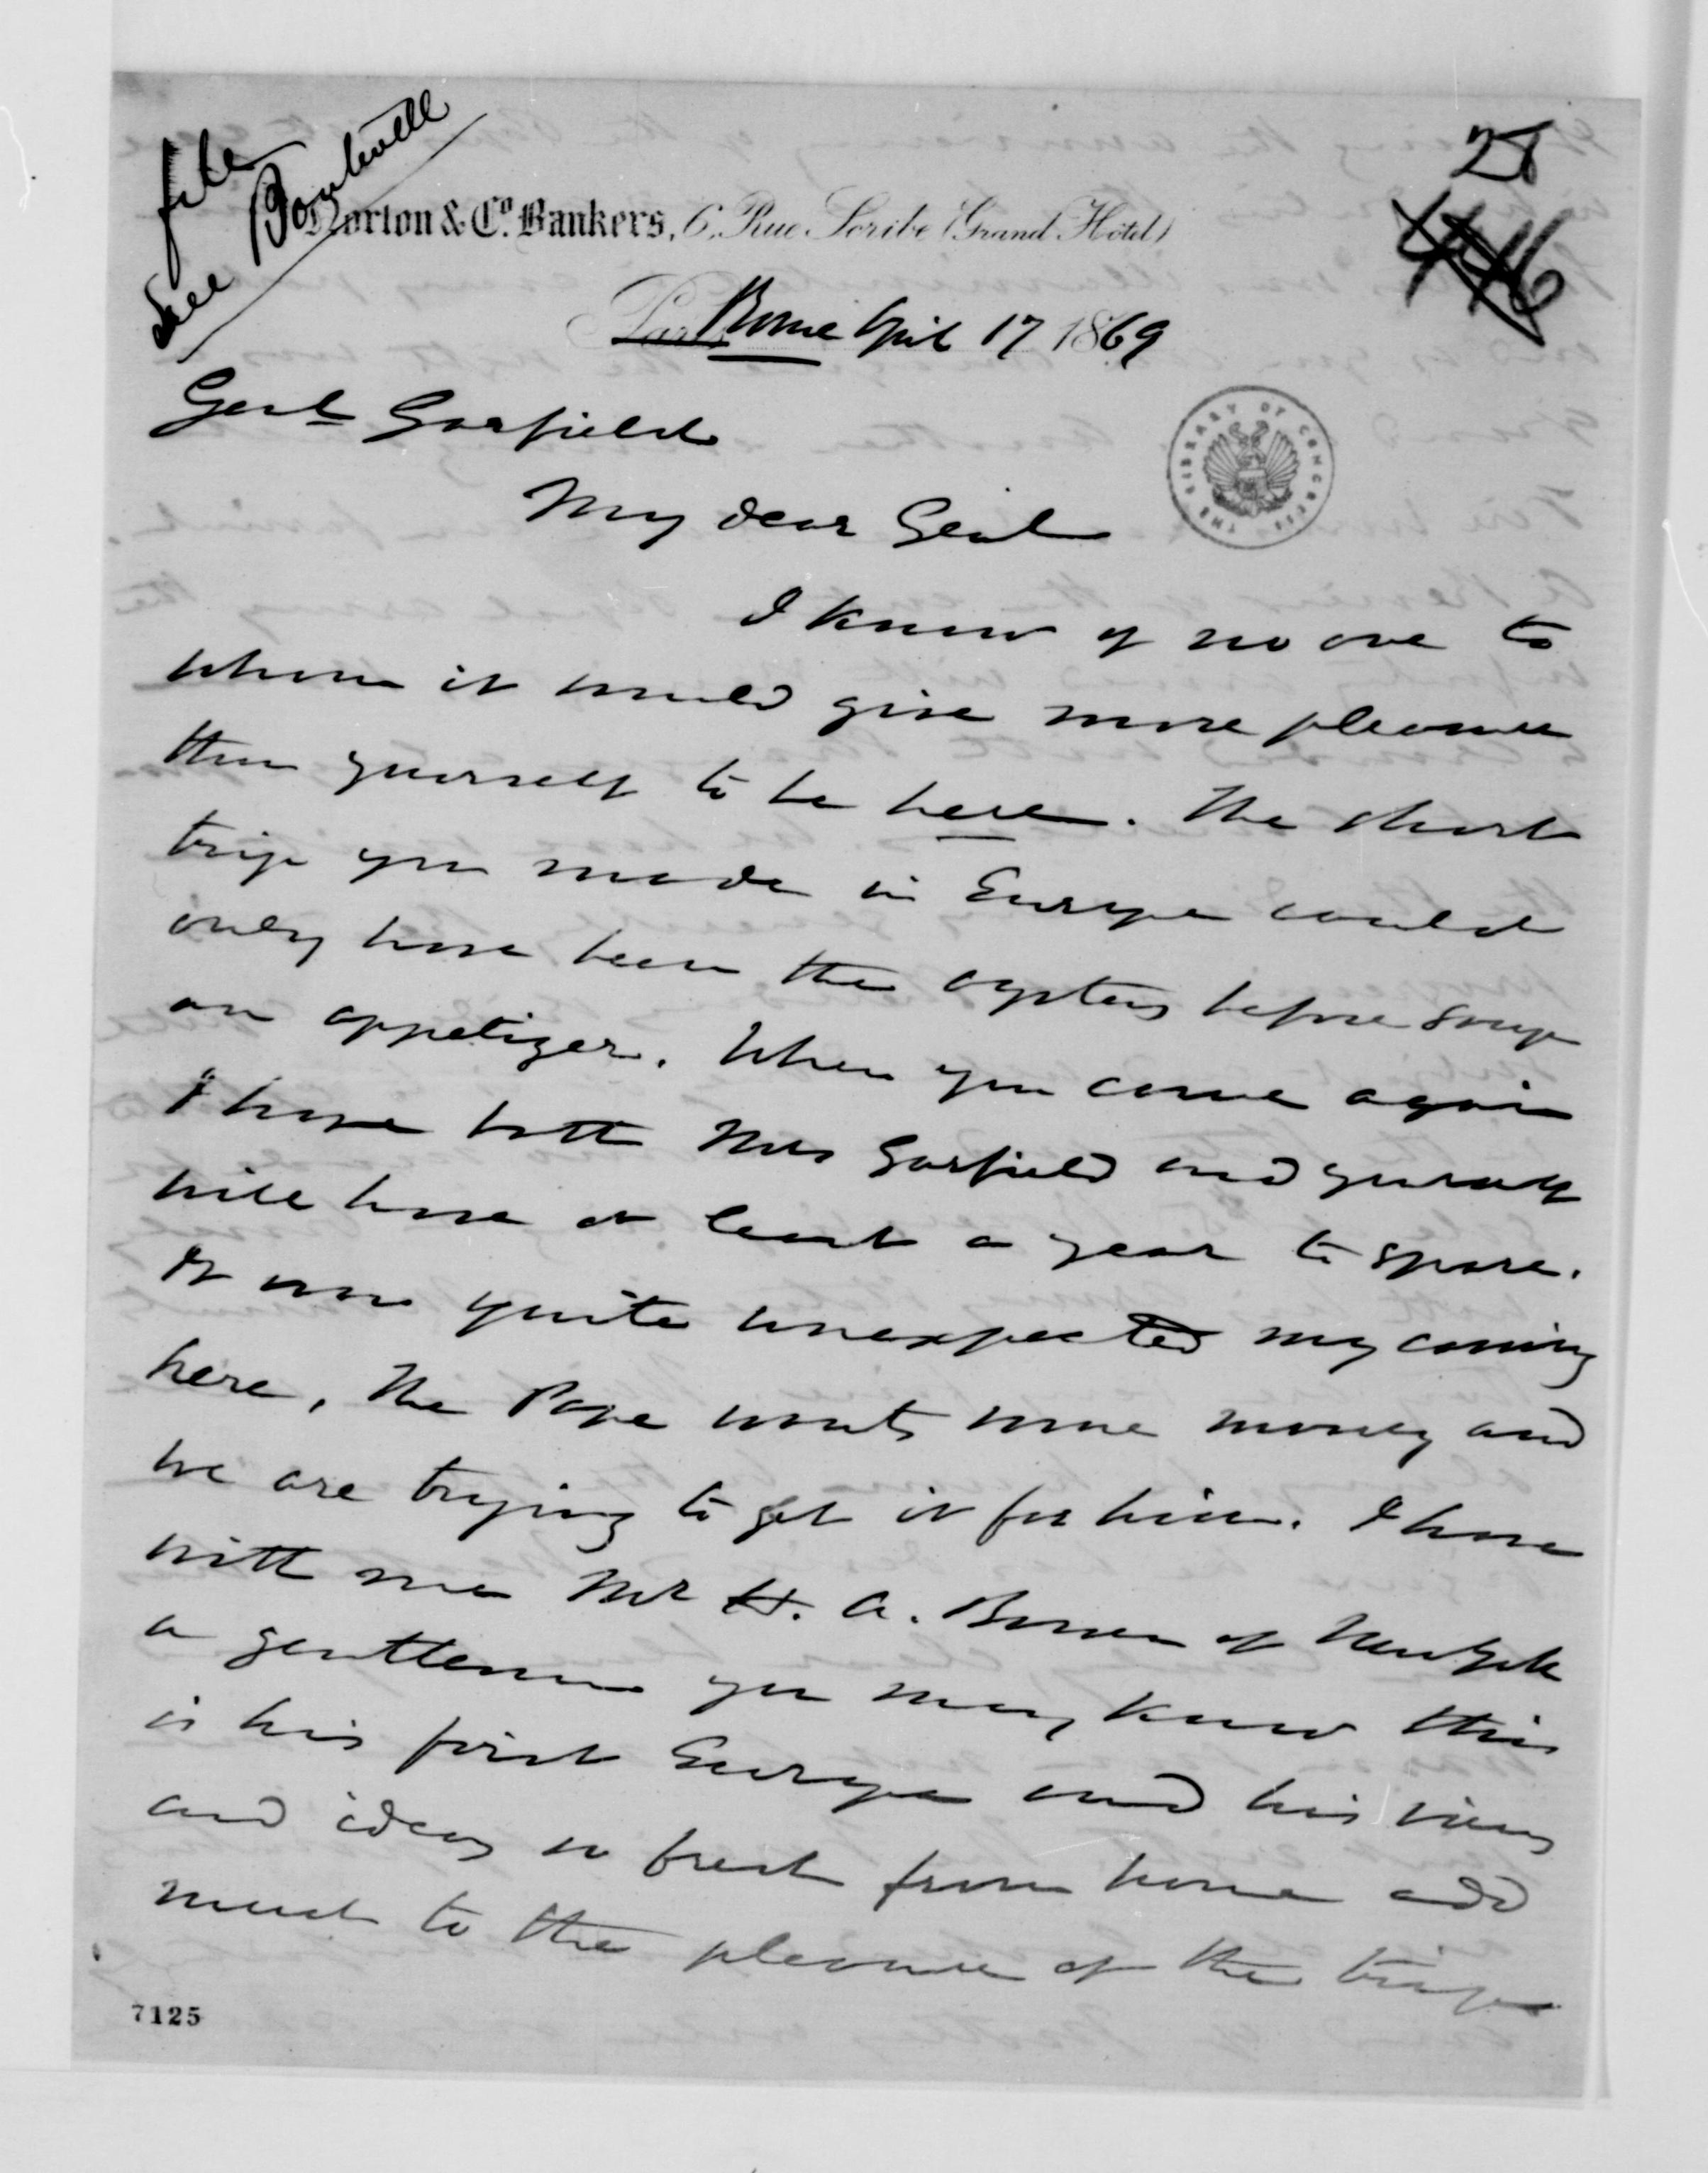 file
See Boutwell
28
446
Norton & Co. Bankers, 6, Rue Scribe (Grand Hôtel)
Paris Rome April 17 1869
THE LIBRARY OF CONGRESS
Genl Garfield
My dear Genl
I know of no one to
whom it would give more pleasure
than yourself to be here. The short
trip you made in Europe could
only have been the oysters before soup
an appetizer. When you come again
I hope both Mrs Garfield and yourself
will have at least a year to spare.
It was quite unexpected my coming
here, The Pope wants more money and
we are trying to get it for him. I have
with me Mr H. A. Bowen of New York
a gentleman you may know this
is his first Europe and his views
and ideas so fresh from home add
much to the pleasure of the trip
7125